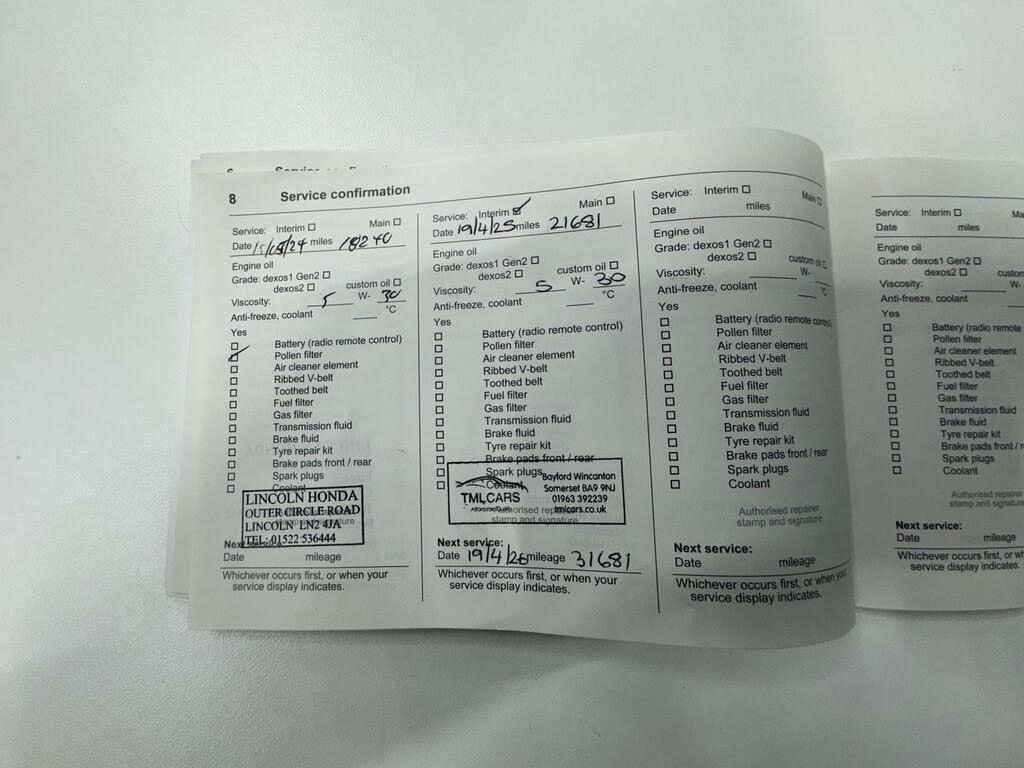 8 Service confirmation
Service: Interim ☐ Main ☐
Date 15/08/24 miles 18240
Engine oil
Grade: dexos1 Gen2 ☐
dexos2 ☐ custom oil ☐
Viscosity: 5 W- 30
Anti-freeze, coolant °C
Yes
☐ Battery (radio remote control)
☑ Pollen filter
☐ Air cleaner element
☐ Ribbed V-belt
☐ Toothed belt
☐ Fuel filter
☐ Gas filter
☐ Transmission fluid
☐ Brake fluid
☐ Tyre repair kit
☐ Brake pads front / rear
☐ Spark plugs
☐ Coolant
LINCOLN HONDA
OUTER CIRCLE ROAD
LINCOLN LN2 4JA
TEL: 01522 536444
stamp and signature
Next service:
Date mileage
Whichever occurs first, or when your
service display indicates.
Service: Interim ☑ Main ☐
Date 19/4/25 miles 21681
Engine oil
Grade: dexos1 Gen2 ☐
dexos2 ☐ custom oil ☐
Viscosity: 5 W- 30
Anti-freeze, coolant °C
Yes
☐ Battery (radio remote control)
☐ Pollen filter
☐ Air cleaner element
☐ Ribbed V-belt
☐ Toothed belt
☐ Fuel filter
☐ Gas filter
☐ Transmission fluid
☐ Brake fluid
☐ Tyre repair kit
☐ Brake pads front / rear
☐ Spark plugs
☐ Coolant
TMLCARS
Bayford Wincanton
Somerset BA9 9NJ
01963 392239
tmlcars.co.uk
Authorised repairer
stamp and signature
Next service:
Date 19/4/26 mileage 31681
Whichever occurs first, or when your
service display indicates.
Service: Interim ☐ Main ☐
Date miles
Engine oil
Grade: dexos1 Gen2 ☐
dexos2 ☐ custom oil ☐
Viscosity: W-
Anti-freeze, coolant °C
Yes
☐ Battery (radio remote control)
☐ Pollen filter
☐ Air cleaner element
☐ Ribbed V-belt
☐ Toothed belt
☐ Fuel filter
☐ Gas filter
☐ Transmission fluid
☐ Brake fluid
☐ Tyre repair kit
☐ Brake pads front / rear
☐ Spark plugs
☐ Coolant
Authorised repairer
stamp and signature
Next service:
Date mileage
Whichever occurs first, or when your
service display indicates.
Service: Interim ☐
Date miles
Engine oil
Grade: dexos1 Gen2 ☐
dexos2 ☐ custom
Viscosity: W-
Anti-freeze, coolant
Yes
☐ Battery (radio remote
☐ Pollen filter
☐ Air cleaner element
☐ Ribbed V-belt
☐ Toothed belt
☐ Fuel filter
☐ Gas filter
☐ Transmission fluid
☐ Brake fluid
☐ Tyre repair kit
☐ Brake pads front / re
☐ Spark plugs
☐ Coolant
Authorised repairer
stamp and signature
Next service:
Date mileage
Whichever occurs first, or wh
service display indicates.